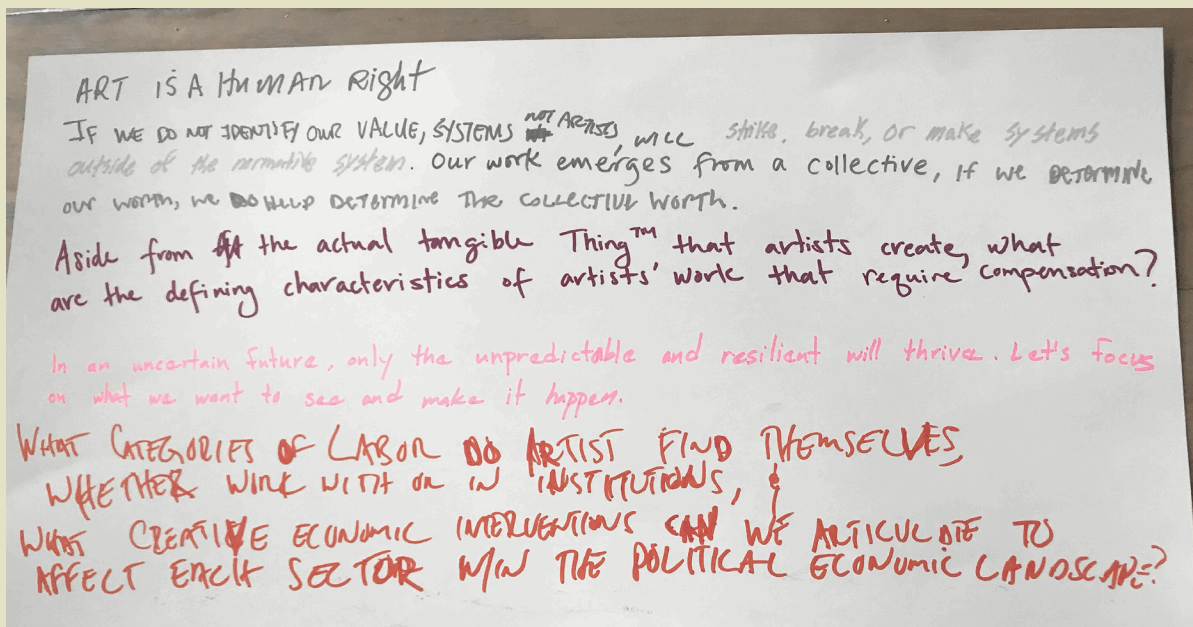 ART IS A HUMAN Right
IF WE DO NOT IDENTIFY OUR VALUE, SYSTEMS NOT ARTISTS, WILL strike, break, or make systems
outside of the normative system. Our work emerges from a collective, IF we DETERMINE
our worth, we DO HELP DETERMINE THE COLLECTIVE WORTH.
Aside from the actual tangible Thing™ that artists create, what
are the defining characteristics of artists' work that require compensation?
In an uncertain future, only the unpredictable and resilient will thrive. Let's focus
on what we want to see and make it happen.
WHAT CATEGORIES OF LABOR DO ARTIST FIND THEMSELVES,
WHETHER WORK WITH OR IN INSTITUTIONS, &
WHAT CREATIVE ECONOMIC INTERVENTIONS CAN WE ARTICULATE TO
AFFECT EACH SECTOR W/IN THE POLITICAL ECONOMIC LANDSCAPE?